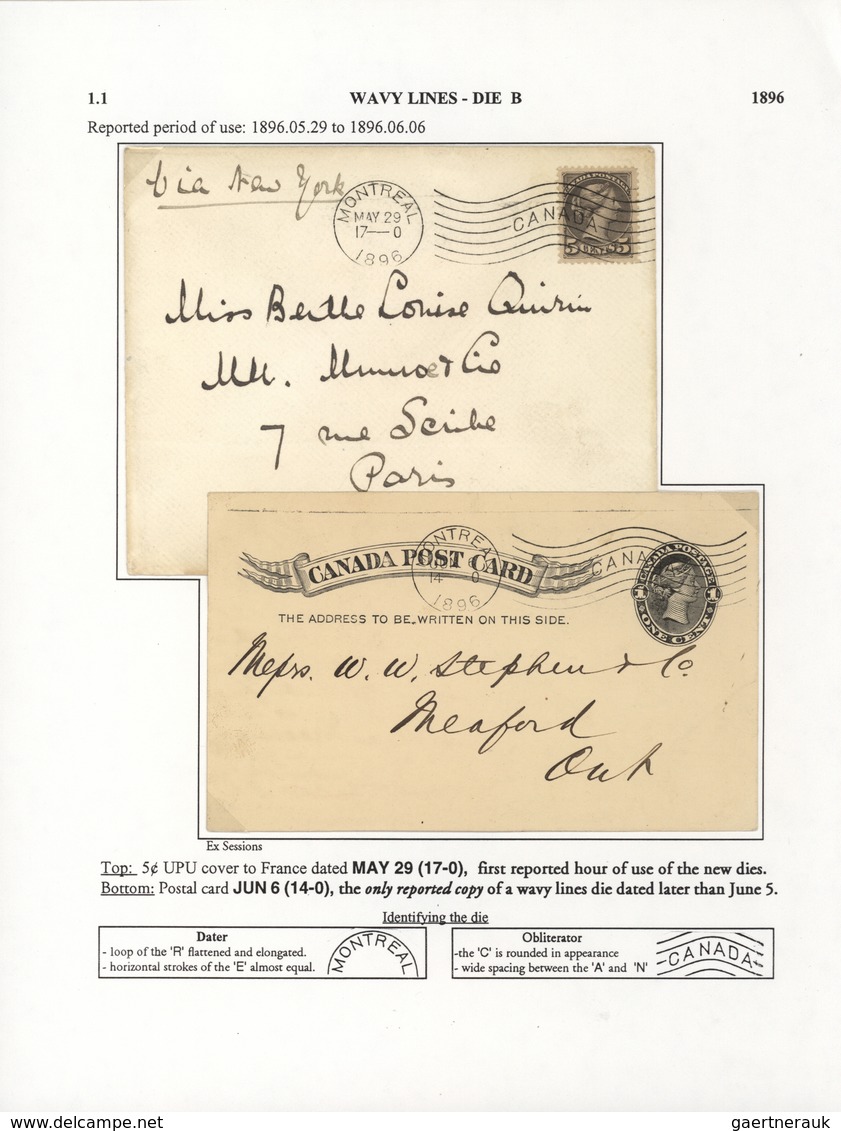 1.1 WAVY LINES - DIE B 1896
Reported period of use: 1896.05.29 to 1896.06.06
Via New York
MONTREAL
MAY 29
17—0
1896
CANADA
CANADA POSTAGE
5 CENTS 5
Miss Berthe Louise Quirin
MM. Munroe & Cie
7 rue Scribe
Paris
MONTREAL
14 0
1896
CANADA
CANADA POST CARD
CANADA POSTAGE
1 1
ONE CENT
THE ADDRESS TO BE WRITTEN ON THIS SIDE.
Messrs. W. W. Stephen & Co
Meaford
Ont
Ex Sessions
Top: 5¢ UPU cover to France dated MAY 29 (17-0), first reported hour of use of the new dies.
Bottom: Postal card JUN 6 (14-0), the only reported copy of a wavy lines die dated later than June 5.
Identifying the die
Dater
- loop of the 'R' flattened and elongated.
- horizontal strokes of the 'E' almost equal.
MONTREAL
Obliterator
-the 'C' is rounded in appearance
- wide spacing between the 'A' and 'N'
CANADA
www.delcampe.net
gaertnerauk